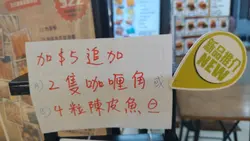 加$5追加
2隻咖喱角 或
4粒陳皮魚旦
新品推介
NEW